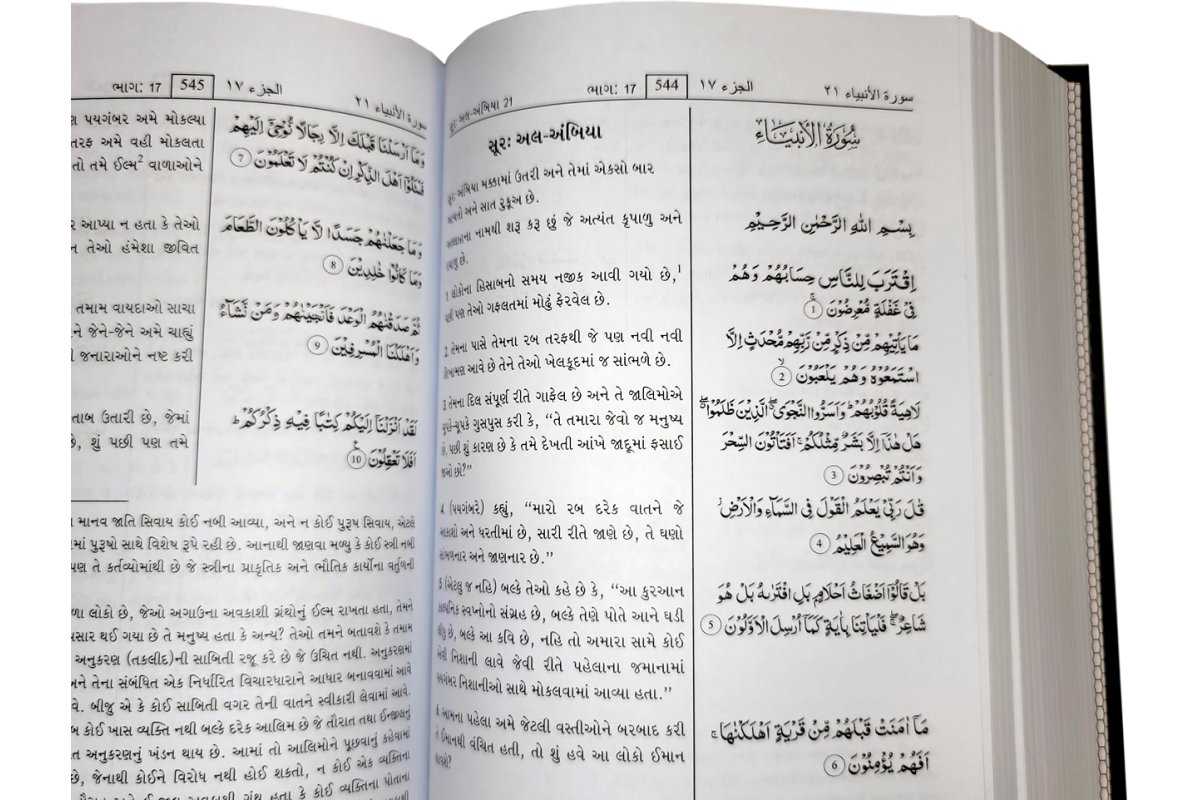 سورة الأنبياء ٢١
الجزء ١٧
544
ભાગ: 17
સૂરહ અલ-અંબિયા 21
سُوْرَةُ الْأَنْبِيَاءِ
بِسْمِ اللهِ الرَّحْمٰنِ الرَّحِيْمِ
اِقْتَرَبَ لِلنَّاسِ حِسَابُهُمْ وَهُمْ
فِيْ غَفْلَةٍ مُّعْرِضُوْنَ 1
مَا يَأْتِيْهِمْ مِّنْ ذِكْرٍ مِّنْ رَّبِّهِمْ مُّحْدَثٍ اِلَّا
اسْتَمَعُوْهُ وَهُمْ يَلْعَبُوْنَ 2
لَاهِيَةً قُلُوْبُهُمْ وَاَسَرُّوا النَّجْوَى الَّذِيْنَ ظَلَمُوْا
هَلْ هٰذَا اِلَّا بَشَرٌ مِّثْلُكُمْ اَفَتَاْتُوْنَ السِّحْرَ
وَاَنْتُمْ تُبْصِرُوْنَ 3
قٰلَ رَبِّيْ يَعْلَمُ الْقَوْلَ فِي السَّمَآءِ وَالْاَرْضِ
وَهُوَ السَّمِيْعُ الْعَلِيْمُ 4
بَلْ قَالُوْٓا اَضْغَاثُ اَحْلَامٍ بَلِ افْتَرٰىهُ بَلْ هُوَ
شَاعِرٌ فَلْيَاْتِنَا بِاٰيَةٍ كَمَآ اُرْسِلَ الْاَوَّلُوْنَ 5
مَآ اٰمَنَتْ قَبْلَهُمْ مِّنْ قَرْيَةٍ اَهْلَكْنٰهَا
اَفَهُمْ يُؤْمِنُوْنَ 6
સૂરહ અલ-અંબિયા
સૂરહ-અંબિયા મક્કામાં ઉતરી અને તેમાં એકસો બાર
આયતો અને સાત રુકૂઅ છે.
અલ્લાહના નામથી શરૂ કરૂ છું જે અત્યંત કૃપાળુ અને
દયાળુ છે.
1 લોકોના હિસાબનો સમય નજીક આવી ગયો છે,¹
પછી પણ તેઓ ગફલતમાં મોઢું ફેરવેલ છે.
2 તેમના પાસે તેમના રબ તરફથી જે પણ નવી નવી
શિખામણ આવે છે તેને તેઓ ખેલકૂદમાં જ સાંભળે છે.
3 તેમના દિલ સંપૂર્ણ રીતે ગાફેલ છે અને તે જાલિમોએ
ચૂપકે-ચૂપકે ગુસપુસ કરી કે, “તે તમારા જેવો જ મનુષ્ય
છે, પછી શું કારણ છે કે તમે દેખતી આંખે જાદૂમાં ફસાઈ
જાઓ છો?”
4 (પયગંબરે) કહ્યું, “મારો રબ દરેક વાતને જે
આકાશો અને ધરતીમાં છે, સારી રીતે જાણે છે, તે ઘણો
સાંભળનાર અને જાણનાર છે.”
5 (એટલુ જ નહિ) બલ્કે તેઓ કહે છે કે, “આ કુરઆન
સ્વપ્નોનો સંગ્રહ છે, બલ્કે તેણે પોતે આને ઘડી
લીધું છે, બલ્કે આ કવિ છે, નહિ તો અમારા સામે કોઈ
એવી નિશાની લાવે જેવી રીતે પહેલાના જમાનામાં
પયગંબર નિશાનીઓ સાથે મોકલવામાં આવ્યા હતા.”
6 આમના પહેલા અમે જેટલી વસ્તીઓને બરબાદ કરી
ઈમાનથી વંચિત હતી, તો શું હવે આ લોકો ઈમાન
લાવશે?
سورة الأنبياء ٢١
الجزء ١٧
545
ભાગ: 17
وَمَآ اَرْسَلْنَا قَبْلَكَ اِلَّا رِجَالًا نُّوْحِيْٓ اِلَيْهِمْ
فَسْـَٔلُوْٓا اَهْلَ الذِّكْرِ اِنْ كُنْتُمْ لَا تَعْلَمُوْنَ 7
وَمَا جَعَلْنٰهُمْ جَسَدًا لَّا يَاْكُلُوْنَ الطَّعَامَ
وَمَا كَانُوْا خٰلِدِيْنَ 8
ثُمَّ صَدَقْنٰهُمُ الْوَعْدَ فَاَنْجَيْنٰهُمْ وَمَنْ نَّشَآءُ
وَاَهْلَكْنَا الْمُسْرِفِيْنَ 9
لَقَدْ اَنْزَلْنَآ اِلَيْكُمْ كِتٰبًا فِيْهِ ذِكْرُكُمْ
اَفَلَا تَعْقِلُوْنَ 10
પયગંબર અમે મોકલ્યા
તરફ અમે વહી મોકલતા
તો તમે ઈલ્મ² વાળાઓને
આપ્યા ન હતા કે તેઓ
ન તેઓ હંમેશા જીવિત
તમામ વાયદાઓ સાચા
ને જેને-જેને અમે ચાહ્યું
જનારાઓને નષ્ટ કરી
તાબ ઉતારી છે, જેમાં
છે, શું પછી પણ તમે
માનવ જાતિ સિવાય કોઈ નબી આવ્યા, અને ન કોઈ પુરૂષ સિવાય, એટલે
માં પુરૂષો સાથે વિશેષ રૂપે રહી છે. આનાથી જાણવા મળ્યુ કે કોઈ સ્ત્રી નબી
પણ તે કર્તવ્યોમાંથી છે જે સ્ત્રીના પ્રાકૃતિક અને ભૌતિક કાર્યોના વર્તુળની
ળા લોકો છે, જેઓ અગાઉના અવકાશી ગ્રંથોનું ઈલ્મ રાખતા હતા, તેમને
પસાર થઈ ગયા છે તે મનુષ્ય હતા કે અન્ય? તેઓ તમને બતાવશે કે તમામ
અનુકરણ (તકલીદ)ની સાબિતી રજૂ કરે છે જે ઉચિત નથી. અનુકરણમાં
અને તેના સંબંધિત એક નિર્ધારિત વિચારધારાને આધાર બનાવવામાં આવે
વે. બીજુ એ કે કોઈ સાબિતી વગર તેની વાતને સ્વીકારી લેવામાં આવે.
કોઈ ખાસ વ્યક્તિ નથી બલ્કે દરેક આલિમ છે જે તૌરાત તથા ઈન્જીલનું
અનુકરણનું ખંડન થાય છે. આમાં તો આલિમોને પૂછવાનું કહેવામાં
છે, જેનાથી કોઈને વિરોધ નથી હોઈ શકતો, ન કોઈ એક વ્યક્તિના
ગ્રંથ હતા કે કોઈ વ્યક્તિના પોતાના